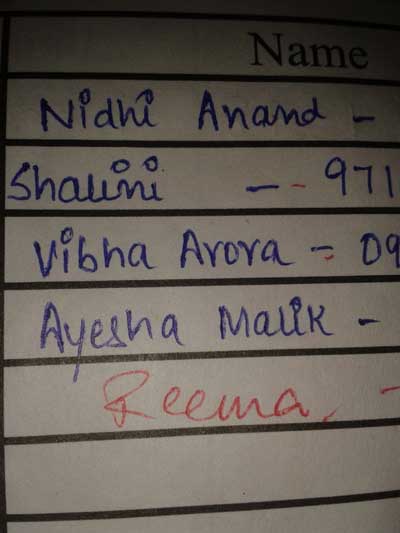 Name
Nidhi Anand -
Shalini - - 971
Vibha Arora - 09
Ayesha Malik -
Reema. -